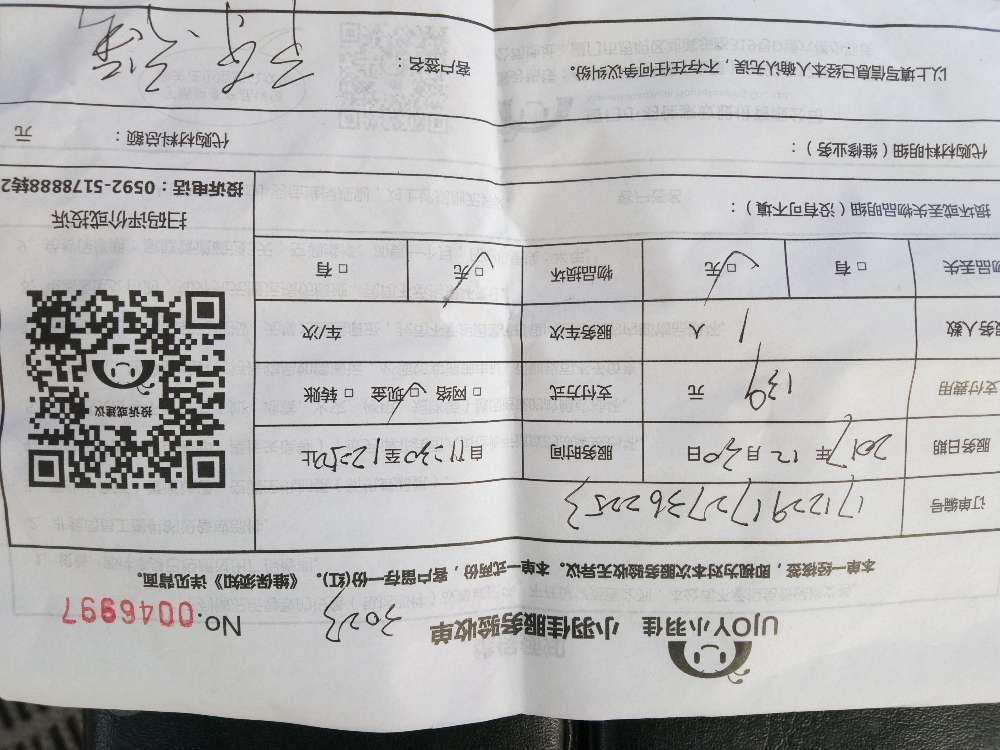 UJOY小羽佳 小羽佳服务验收单 3023 No.0046997
本单一经核签，即视为对本次服务验收无异议。本单一式两份，客户留存一份(红)。《维保须知》详见背面。
订单编号 1712291727362253
服务日期 2017年12月30日 服务时间 自11:30至12:50止
支付费用 139 元 支付方式 □ 网络 □ 现金 □ 转账
服务人数 1 人 服务车次 车/次
物品丢失 □ 有 □ 无 物品损坏 □ 无 □ 有
投诉或建议
扫码评价或投诉
投诉电话：0592-5178888转2
损坏或丢失物品明细（没有可不填）：
代购材料明细（维修业务）：
代购材料总额： 元
以上填写信息已经本人确认无误，不存在任何争议纠纷。 客户签名：